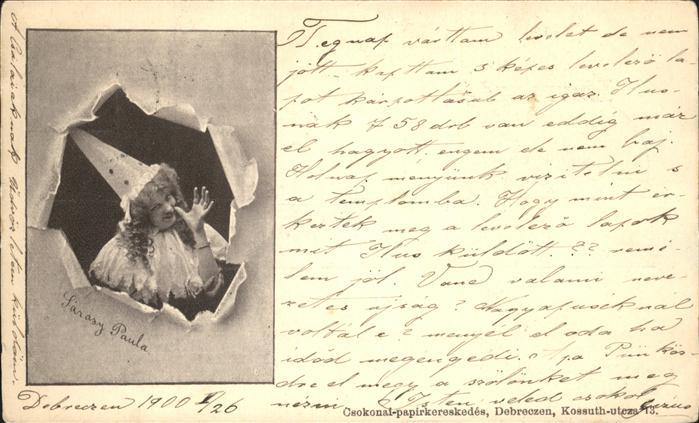 Tegnap vártam levelet de nem
jött. kaptam 5 képes levelező la-
pot kárpótlásul az igaz. Ilus-
nak 758 drb van eddig már
el hagyott engem de nem baj.
Holnap menyünk vizitelni s
a templomba. Hogy mint ér-
keztek meg a levelező lapok
mit Ilus küldött. ?? remé-
lem jól. Vane valami neve-
zetes ujság? Nagyapáéknál
voltál e? menyél el oda ha
időd megengedi. Apa Pünkös-
dre el megy a szőlőnket meg
nézni Isten veled csókol
Sárosy Paula
Debreczen 1900 V/26
Csokonai-papirkereskedés, Debreczen, Kossuth-utcza 13.